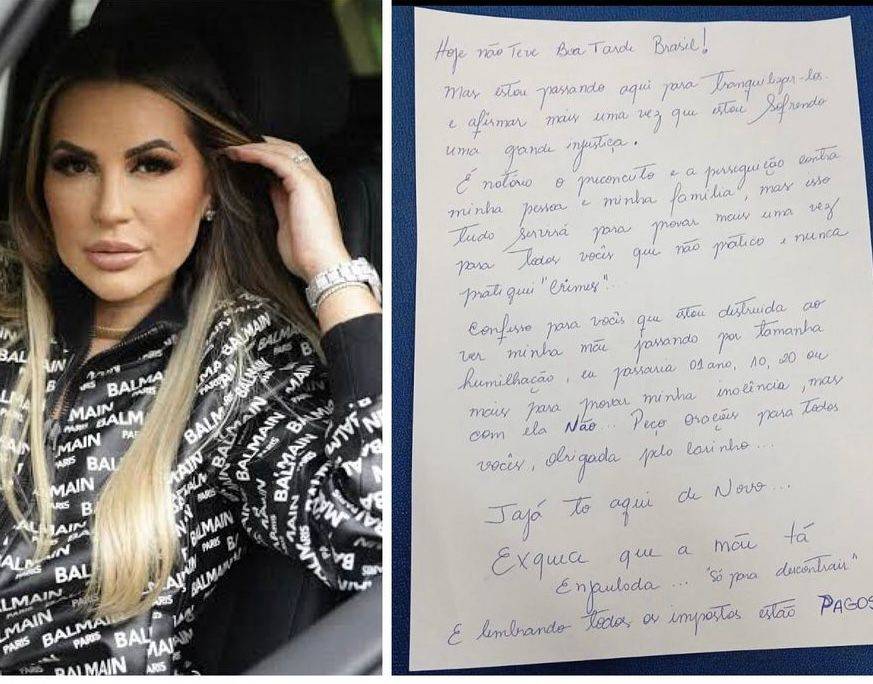 BALMAIN
PARIS
BALMAIN
PARIS
BALMAIN
PARIS
BALMAIN
PARIS
Hoje não Teve Boa Tarde Brasil!
Mas estou passando aqui para Tranquilizar-los
e afirmar mais uma vez que estou Sofrendo
uma grande injustiça.
É notório o preconceito e a perseguição contra
minha pessoa e minha família, mas isso
tudo Servirá para provar mais uma vez
para todos vocês que não prático e nunca
pratiquei "Crimes"...
Confesso para vocês que estou destruida ao
ver minha mãe passando por tamanha
humilhação, eu passaria 01 ano, 10, 20 ou
mais para provar minha inocência, mas
com ela Não... Peço orações para todos
vocês, obrigada pelo Carinho...
Jajá to aqui de Novo...
que a mãe tá
Enjaulada... "Só para descontrair"
E lembrando todos os impostos estão PAGOS